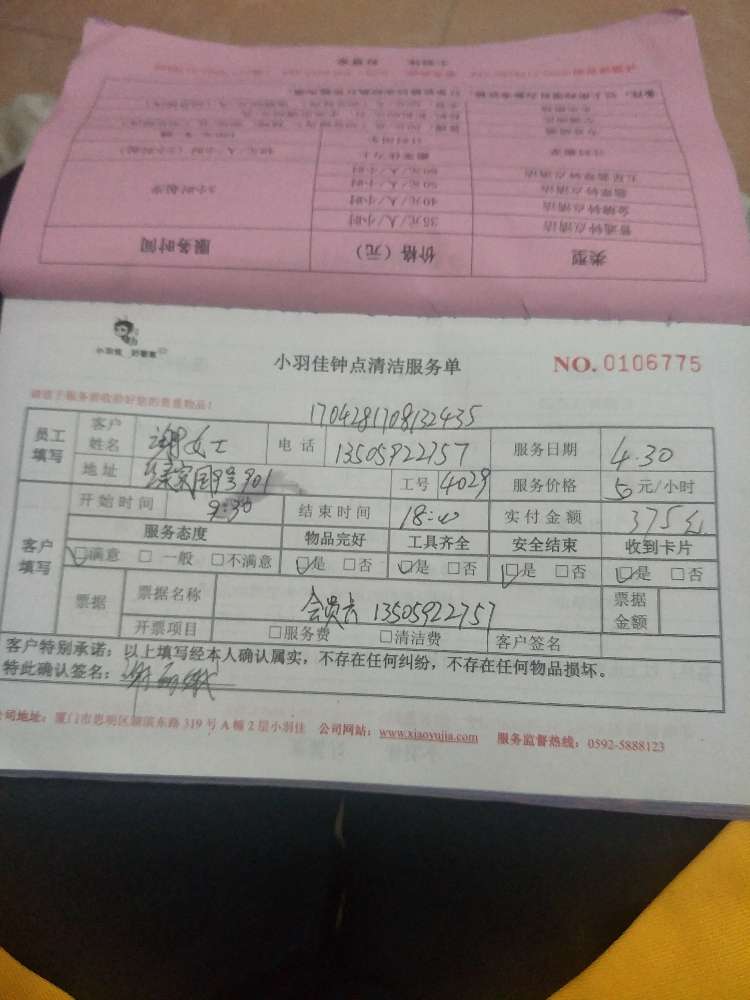 类型 价格（元） 服务时间
普通钟点清洁 35元/人/小时
金牌钟点清洁 40元/人/小时 3小时起步
翡翠钟点清洁 50元/人/小时
五星翡翠钟点清洁 60元/人/小时
小羽佳 好管家
小羽佳钟点清洁服务单 NO. 0106775
1704281708132435
员工填写 客户姓名 谢女士 电话 13505922757 服务日期 4.30
地址 9号901 工号 4029 服务价格 50 元/小时
客户填写 开始时间 9:30 结束时间 18:00 实付金额 375元
服务态度 物品完好 工具齐全 安全结束 收到卡片
☑满意 □一般 □不满意 ☑是 □否 ☑是 □否 ☑是 □否 ☑是 □否
票据 票据名称 会员卡 13505922757 票据金额
开票项目 □服务费 □清洁费 客户签名
客户特别承诺：以上填写经本人确认属实，不存在任何纠纷，不存在任何物品损坏。
特此确认签名：
公司地址：厦门市思明区湖滨东路 319 号 A 幢 2 层小羽佳 公司网站：www.xiaoyujia.com 服务监督热线：0592-5888123